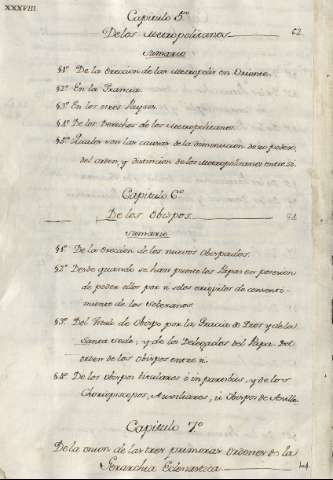 XXXVIII
Capitulo 5º
De los Metropolitanos 62
Sumario
§1º De la ereccion de las Metropolis en Oriente.
§2º En la Francia.
§3º En los otros Reynos.
§4º De los Derechos de los Metropolitanos.
§5º Quales son las causas de la diminucion de su poder,
del orden, y distincion de los Metropolitanos entre si.
Capitulo 6º
De los Obispos
Sumario
§1º De la ereccion de los nuevos Obispados.
§2º Desde quando se han puesto los Papas en posesion
de poder ellos por si solos erigirlos de consenti-
miento de los Soberanos
§3º Del Titulo de Obispo por la Gracia de Dios y de la
Santa Sede, y de los Delegados del Papa. Del
orden de los Obispos entre si.
§4º De los Obispos titulares ó in partibus, y de los
Choriepiscopos, Auxiliares, ú Obispos de Anillo
Capitulo 7º
De la union de las tres primeras ordenes de la
Gerarchia Eclesiastica